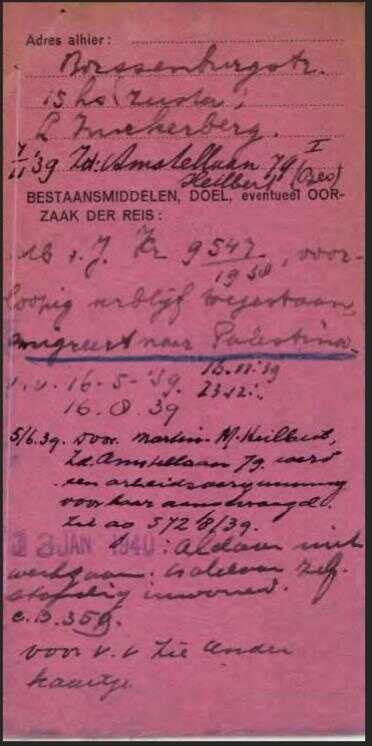 Adres alhier:
Borssenburgstr.
15 hs (zuster)
L Zuckerberg.
7/11 '39 Zd: Amstellaan 79 I
Heilbert (Oreo)
BESTAANSMIDDELEN, DOEL, eventueel OOR-
ZAAK DER REIS:
Mb v. J. Kr 9547/1938, voor-
loopig verblijf toegestaan
emigreert naar Palestina.
v.v. 16-5-'39. 16.11.'39
16.8.39 23.12.
5/6.39. Door Martin M. Heilbut,
Zd. Amstellaan 79. werd
een arbeidsvergunning
voor haar aangevraagd.
Zie ao 572/8/39.
3 JAN 1940: Aldaar niet
werkzaam: aldaar zelf-
standig inwoned.
c.B.359.
voor v.v zie ander
kaartje.